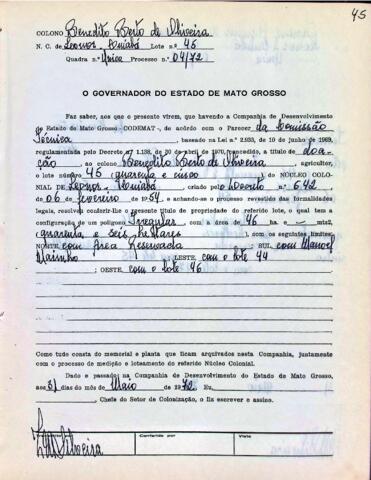 45
COLONO Benedito Berto de Oliveira
N. C. de Leonor - Cuiabá Lote n.º 45
Quadra n.º Única Processo n.º 04/72
O GOVERNADOR DO ESTADO DE MATO GROSSO
Faz saber, aos que o presente virem, que havendo a Companhia de Desenvolvimento
do Estado de Mato Grosso -CODEMAT-, de acôrdo com o Parecer da Comissão
Técnica, baseado na Lei n.º 2.933, de 10 de junho de 1969,
regulamentada pelo Decreto n.º 1.138, de 30 de abril de 1970, concedido, a título de doa-
ção ao colono Benedito Berto de Oliveira, agricultor,
o lote número 45 quarenta e cinco do NÚCLEO COLO-
NIAL DE Leonor - Cuiabá, criado pelo Decreto n.º 642,
de 06 de fevereiro de 1954, e achando-se o processo revestido das formalidades
legais, resolveu conferir-lhe o presente título de propriedade do referido lote, o qual tem a
configuração de um polígono Irregular com a área de 46 ha. e — mts2,
(quarenta e seis hectares), com os seguintes limites:
NORTE com Área Reservada; SUL com Manoel
Marinho; LESTE com o lote 44
; OESTE com o lote 46
Como tudo consta do memorial e planta que ficam arquivados nesta Companhia, juntamente
com o processo de medição e loteamento do referido Núcleo Colonial.
Dado e passado na Companhia de Desenvolvimento do Estado de Mato Grosso,
aos 31 dias do mês de Maio de 1972. Eu,
, Chefe do Setor de Colonização, o fiz escrever e assino.
Conferido por
Visto